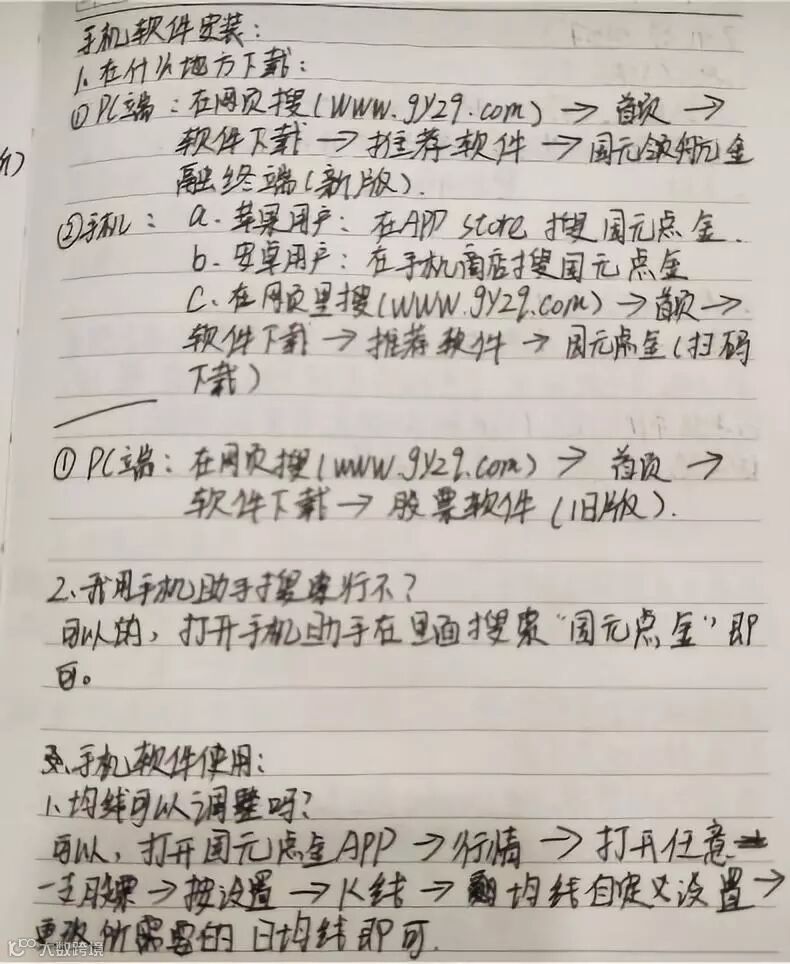 手机软件安装：
1、在什么地方下载：
①PC端：在网页搜(www.gyzq.com)→首页→
软件下载→推荐软件→国元领航金
融终端(新版).
②手机：a.苹果用户：在APP store 搜国元点金.
b.安卓用户：在手机商店搜国元点金
C.在网页里搜(www.gyzq.com)→首页→
软件下载→推荐软件→国元点金(扫码
下载)
①PC端：在网页搜(www.gyzq.com)→首页→
软件下载→股票软件(旧版).
2、我用手机助手搜索行不？
可以的，打开手机助手在里面搜索“国元点金”即
可。
手机软件使用：
1、均线可以调整吗？
可以，打开国元点金APP→行情→打开任意
一支股票→按设置→K线→均线自定义设置→
更改所需要的日均线即可.
大数跨境